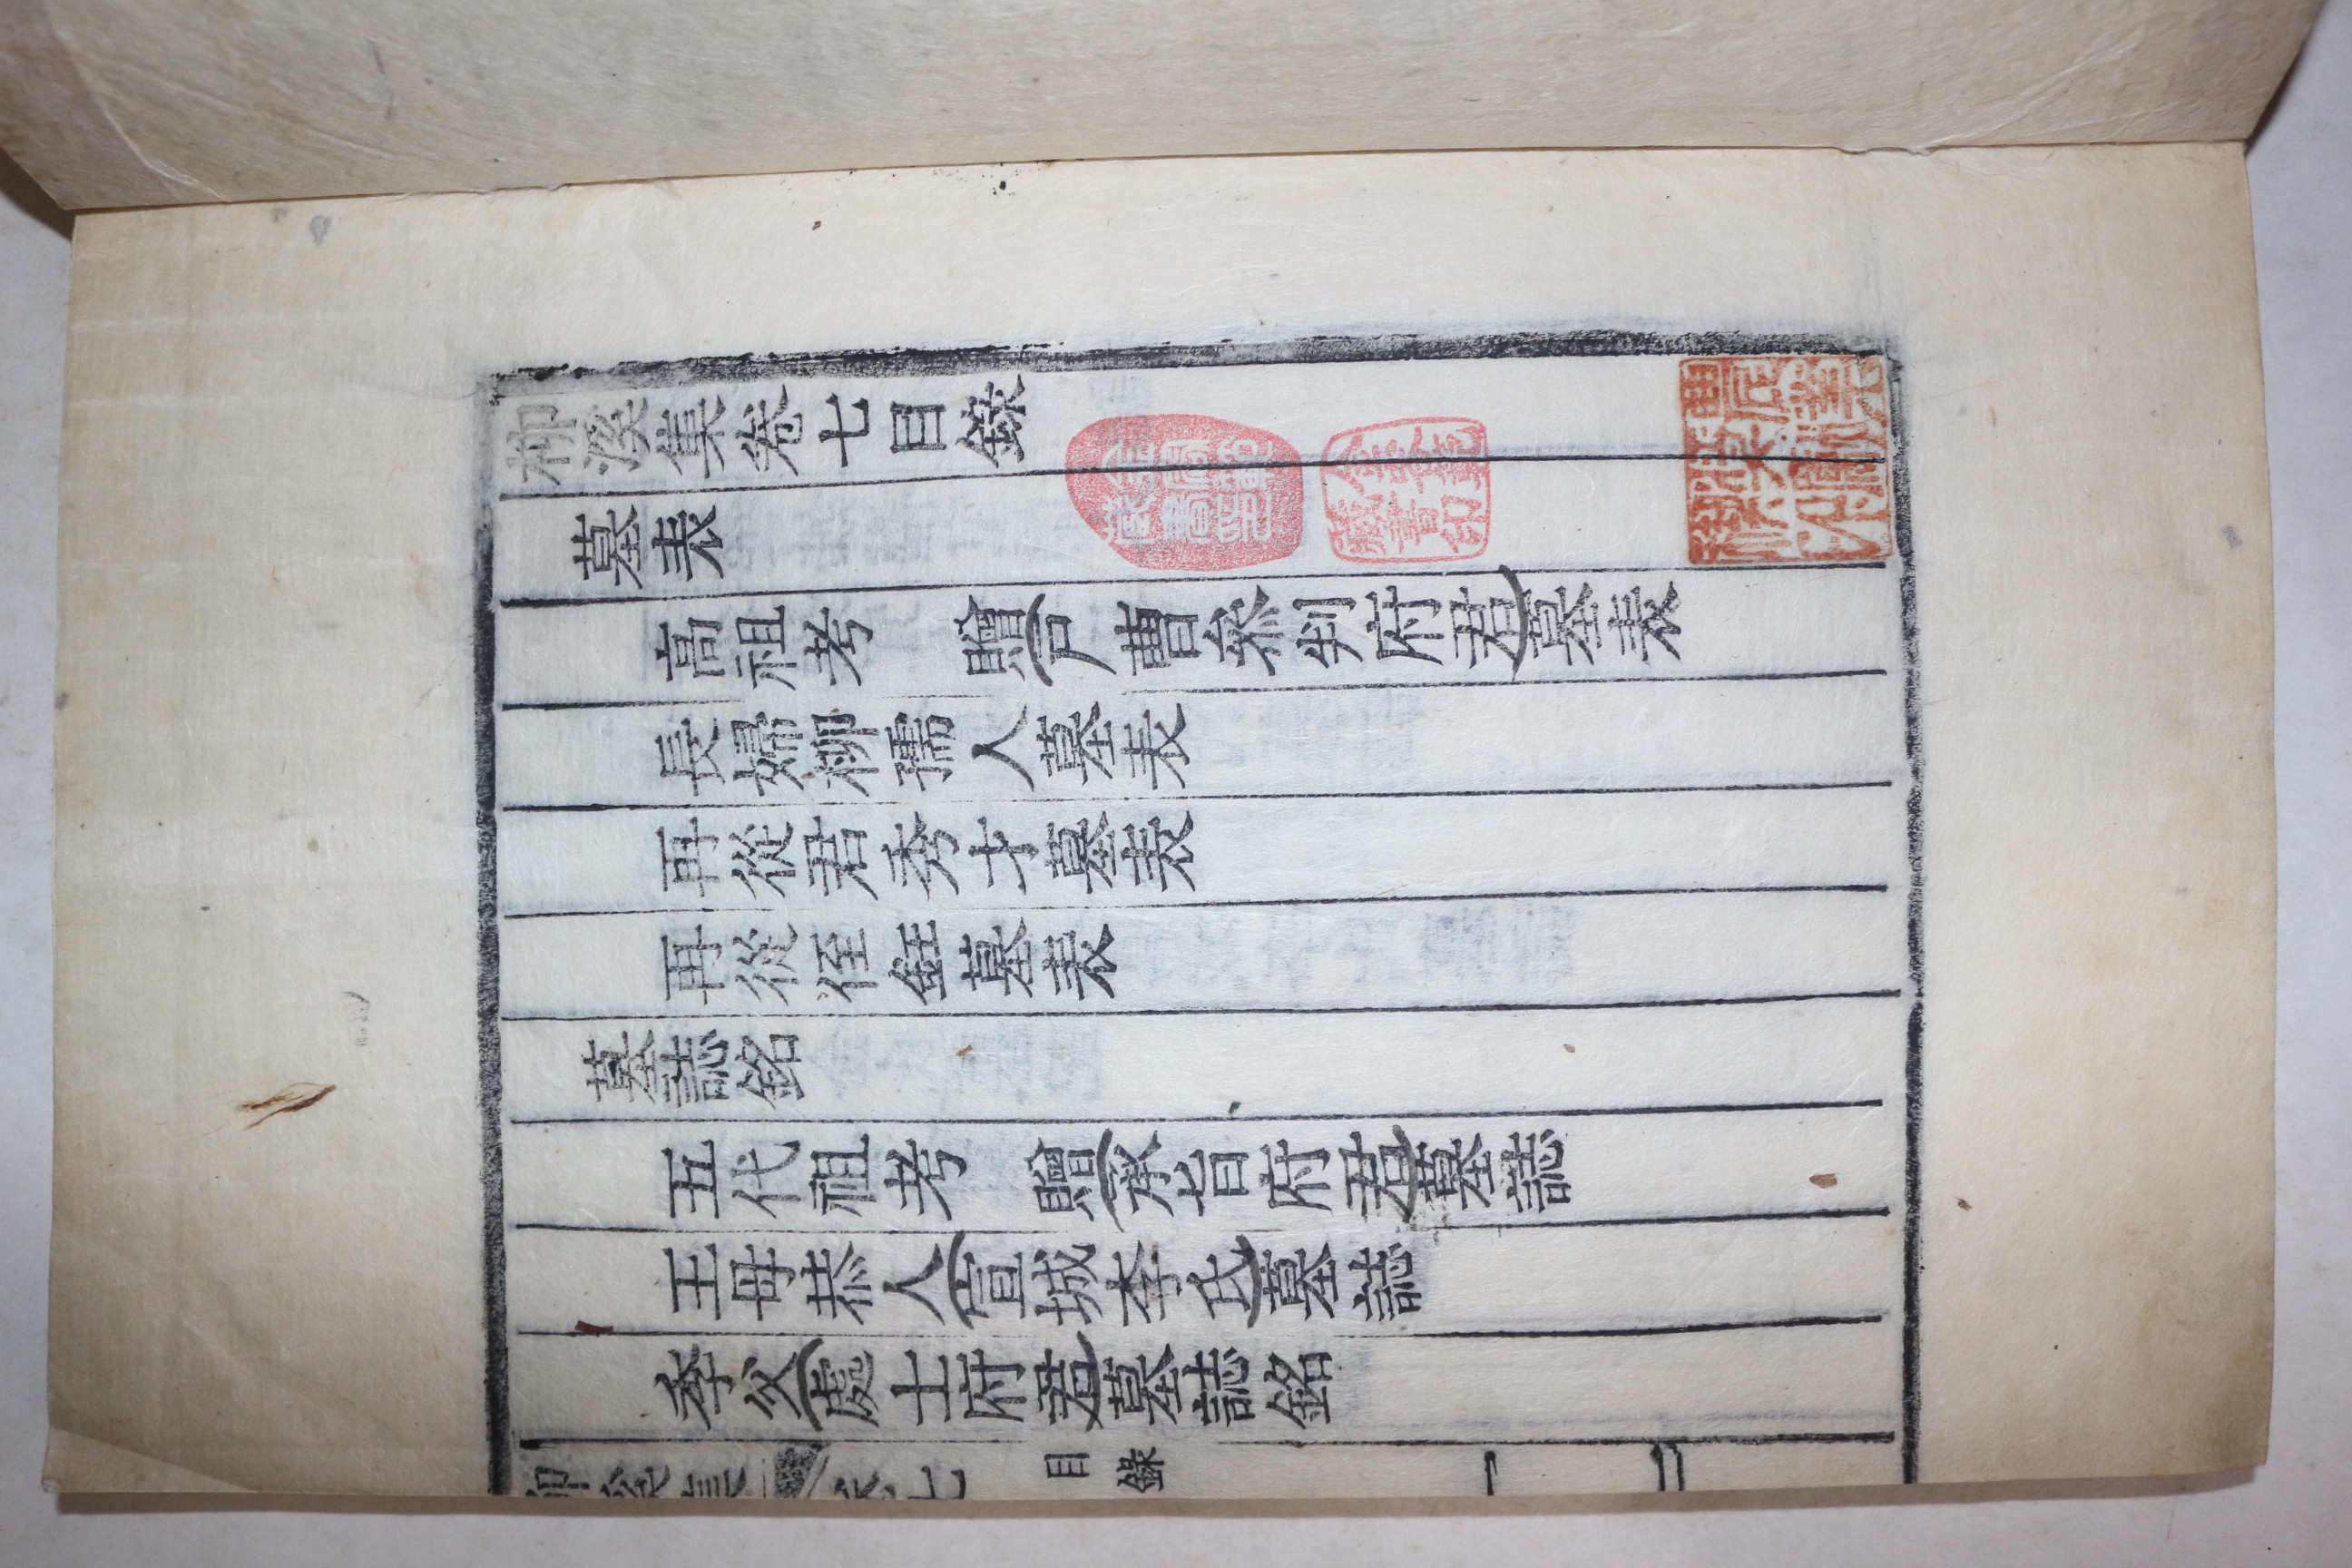 柳溪集卷七目錄
墓表
高祖考 贈(戶曹叅判府君)墓表
長婦柳孺人墓表
再從君秀才墓表
再從侄墓表
墓誌銘
五代祖考 贈(承旨府君)墓誌
王母恭人(宣城李氏)墓誌
季父(處士府君)墓誌銘
柳溪集 卷七 目錄 一